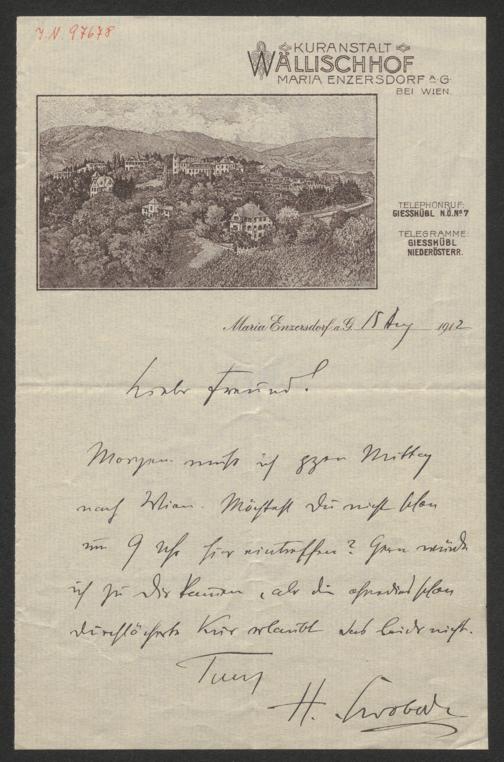 J.N. 97678
KURANSTALT
WÄLLISCHHOF
MARIA ENZERSDORF A.G.
BEI WIEN.
TELEPHONRUF:
GIESSHÜBL N.Ö. Nº 7
TELEGRAMME:
GIESSHÜBL
NIEDERÖSTERR.
Maria Enzersdorf a. G. 15 Aug 1912
Lieber Freund!
Morgen muß ich gegen Mittag
nach Wien. Möchtest Du nicht schon
um 9 Uhr hier eintreffen? Gern würde
ich zu Dir kommen, aber die ohnedies schon
durchlöcherte Kur erlaubt das leider nicht.
H. Swoboda